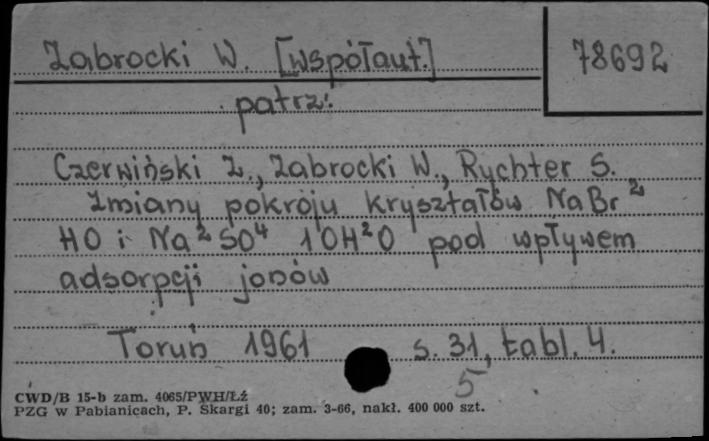 Zabrocki W. [współaut.]
78692
patrz:
Czerwiński Z., Zabrocki W., Rychter S.
Zmiany pokroju kryształów NaBr 2
HO i Na²SO⁴ 10H²O pod wpływem
adsorpcji jonów
Toruń 1961 s. 31, tabl. 4.
5
CWD/B 15-b zam. 4065/PWH/Łż
PZG w Pabianicach, P. Skargi 40; zam. 3-66, nakł. 400 000 szt.